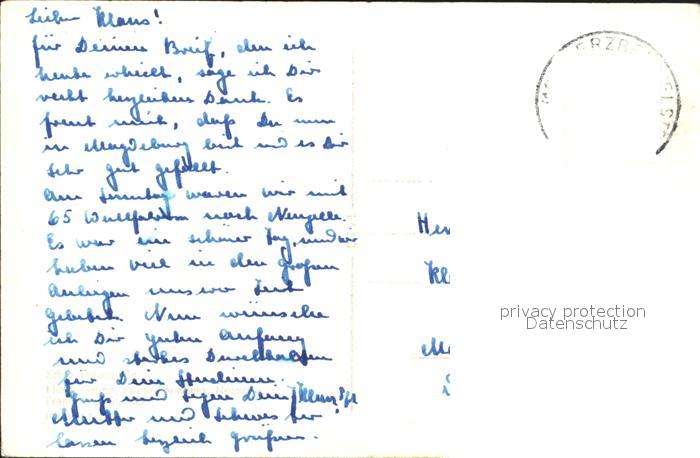 Lieber Klaus!
für Deinen Brief, den ich
heute erhielt, sage ich Dir
recht herzlichen Dank. Es
freut mich, daß Du nun
in Magdeburg bist und es Dir
sehr gut gefällt.
Am Sonntag waren wir mit
65 Wallfahrern nach Neuzelle.
Es war ein schöner Tag, und wir
haben viel in den großen
Anliegen unserer Zeit
gebetet. Nun wünsche
ich Dir guten Anfang
und starkes Durchhalten
für Dein Studium.
Gruß und Segen Dein
Mutter und Schwester
lassen herzlich grüßen.
ERZBE
Her
Kl
Ma
privacy protection
Datenschutz